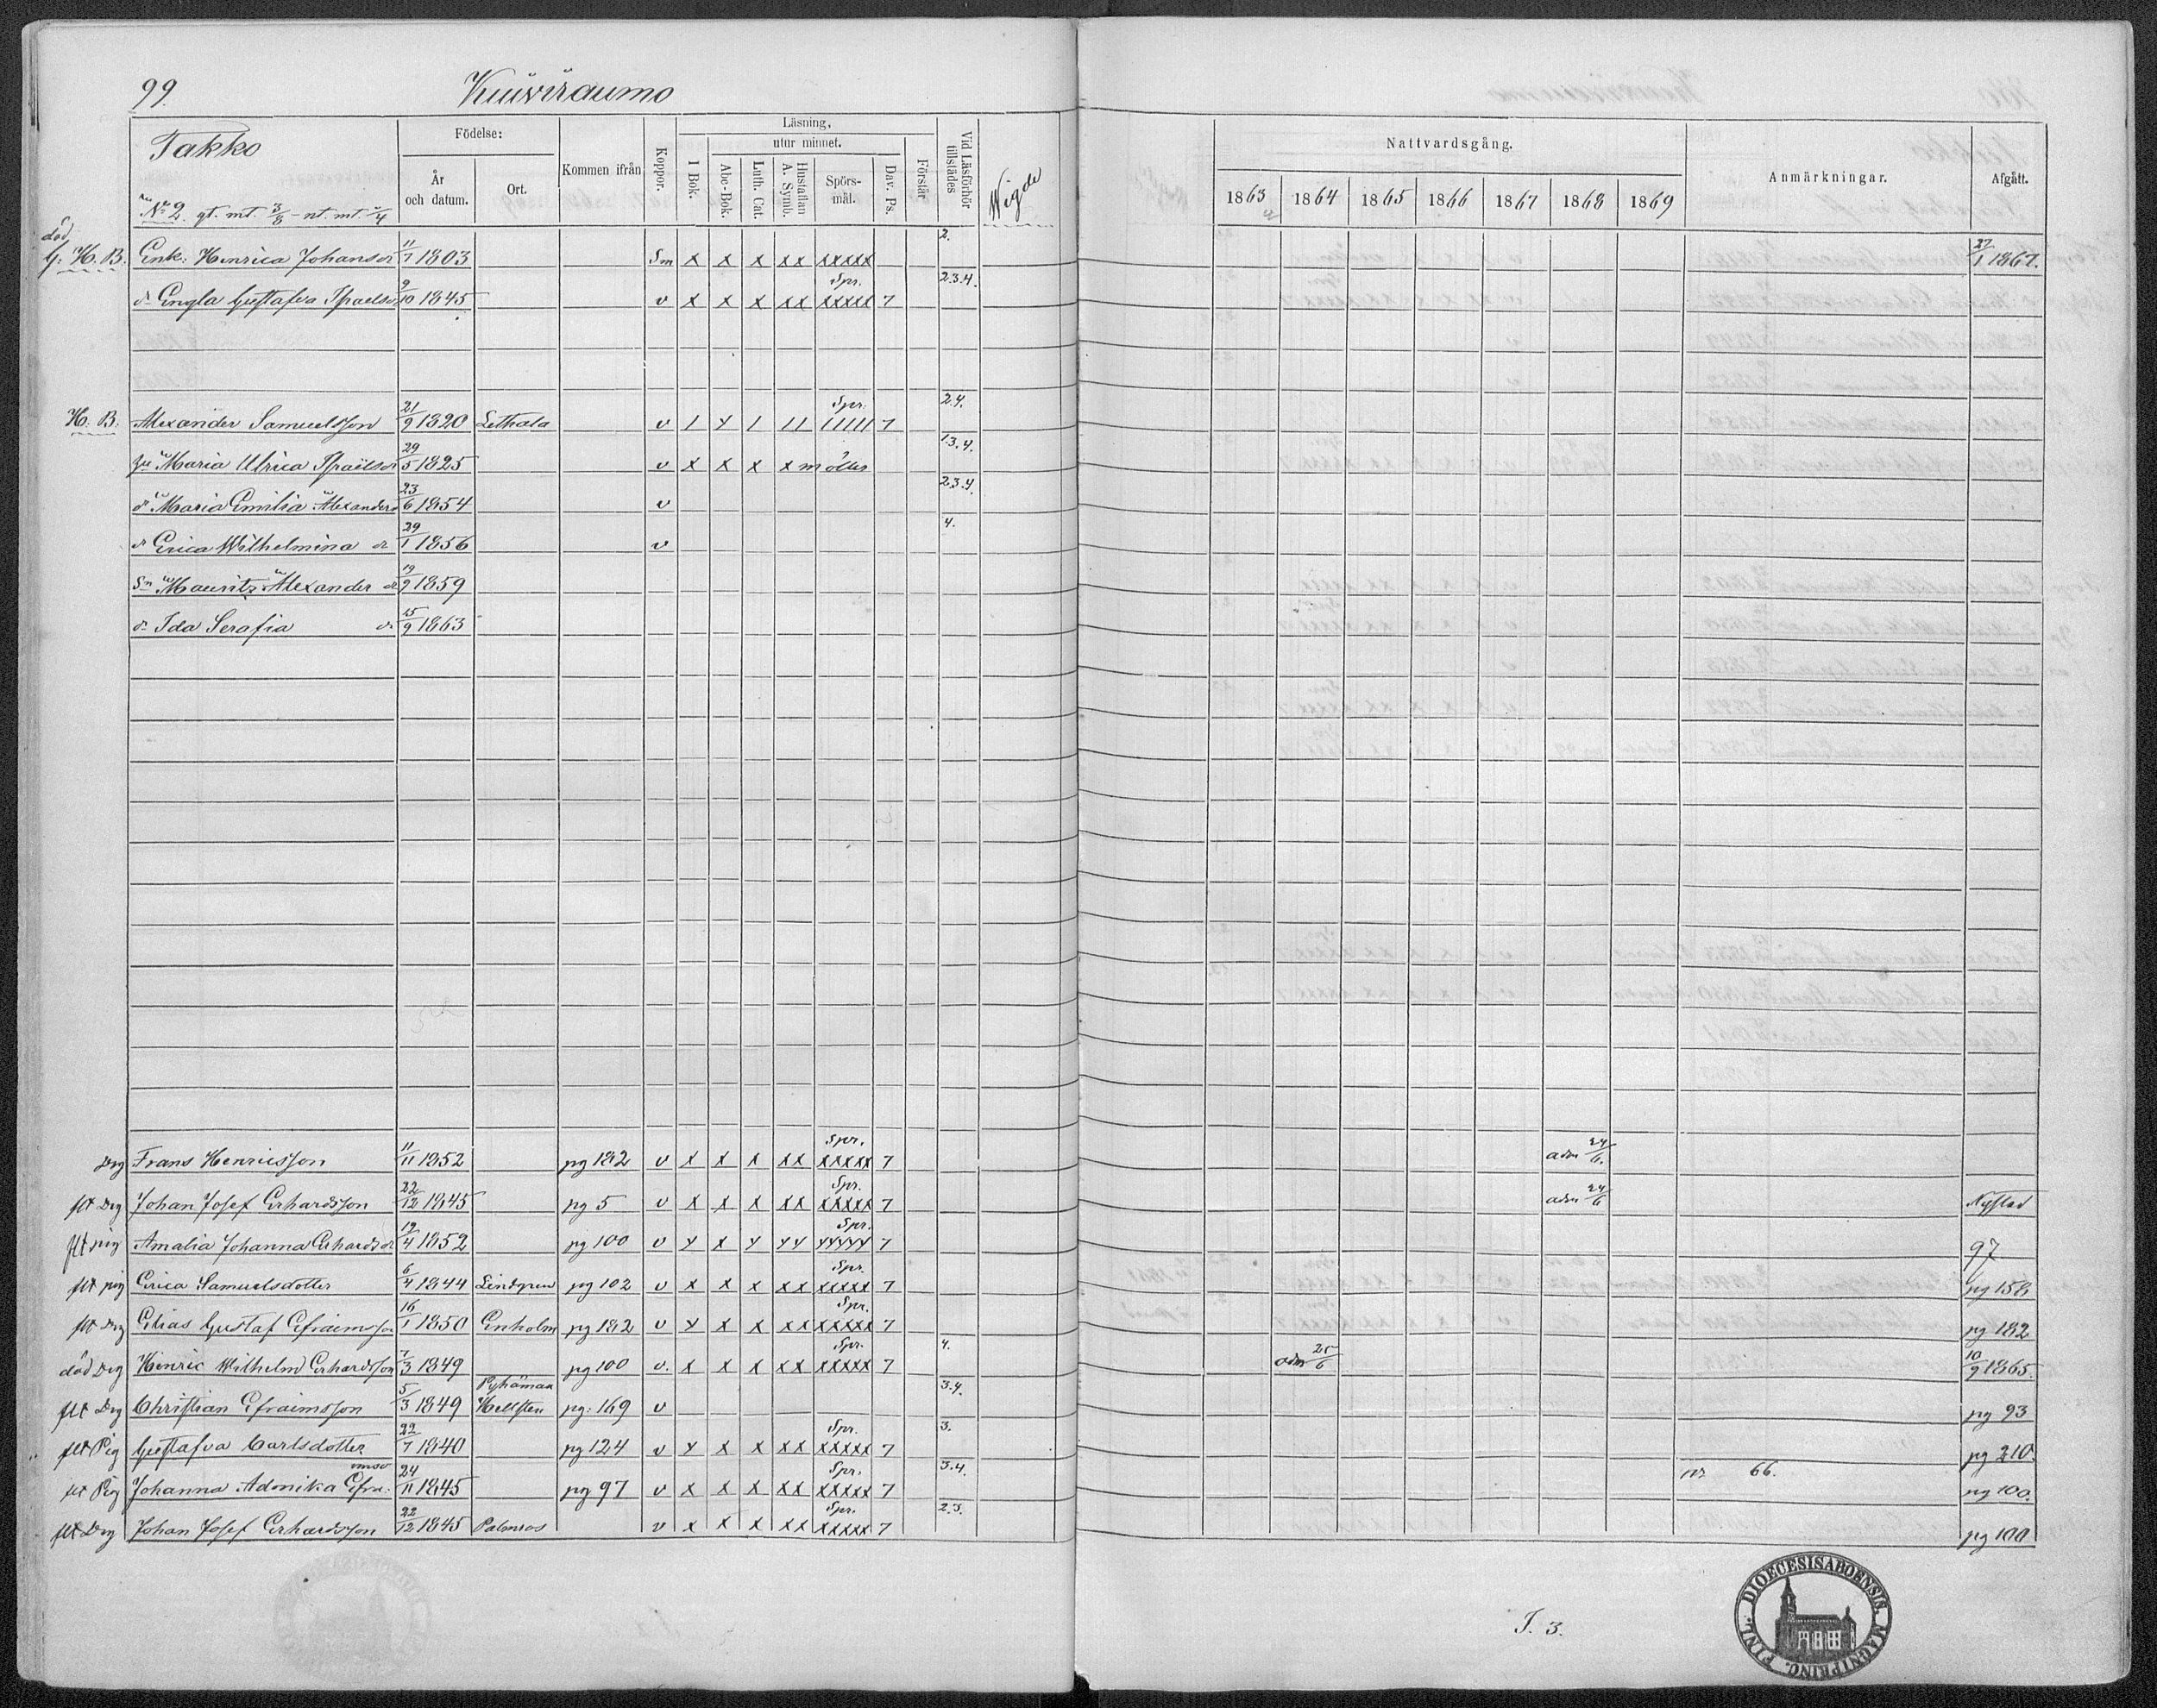 99 Kuivirauma
Takko
Födelse:
År och datum.
Ort.
Kommen ifrån
Koppor.
Läsning,
I Bok.
utur minnet.
Abc-Bok.
Luth. Cat.
Hustaflan A. Symb.
Spörsmål.
Dav. Ps.
Förstår
Vid Läsförhör tillstädes
Wigde
Nattvardsgång.
1863 1864 1865 1866 1867 1868 1869
Anmärkningar.
Afgått.
No 2. gt. mt. 3/8 - nt. mt. 1/4
död
H. B. Enk: Henrica Johansdr 11/7 1803 Sm x x x xx xxxxx 2. 27/1 1867.
dr Engla Gustafva 9/10 1845 v x x x xx Spr. xxxxx 7 2.3.4.
H. B. Alexander Samuelsson 21/9 1820 Lethala v 1 y 1 11 Spr. 11111 7 2.4.
Maria Ulrica 29/5 1825 v x x x x 1.3.4.
dr Maria Emilia Alexandersdr 23/6 1854 v 2.3.4.
dr Erica Wilhelmina dr 29/1 1856 v 4.
Sn Mauritz Alexander 19/9 1859
dr Ida Serafia dr 15/9 1863
Drg Frans Henricsson 11/11 1852 pg 182 v x x x xx Spr. xxxxx 7 adm 24/6.
flt Drg Johan Josef Erhardsson 22/12 1845 pg 5 v x x x xx Spr. xxxxx 7 adm 24/6 Nystad
flt pig Amalia Johanna Erhardsdr 19/4 1852 pg 100 v y x y yy Spr. yyyyy 7 97
flt pig Erica Samuelsdotter 6/4 1844 Lindgren pg 102 v x x x xx Spr. xxxxx 7 pg 158
flt Drg Elias Gustaf Efraimsson 16/1 1850 Enholm pg 182 v y x x xx Spr. xxxxx 7 pg 182
död Drg Henric Wilhelm Erhardsson 7/3 1849 pg 100 v. x x x xx Spr. xxxxx 7 4. adm 25/6 10/9 1865.
flt Drg Christian Efraimsson 5/3 1849 Pyhämaa Hellsten pg: 169 v 3.4. pg 93
flt Pig Gustafva Carlsdotter 22/7 1840 pg 124 v y x x xx Spr. xxxxx 7 3. pg 210.
flt Pig Johanna Admika Efra: 24/11 1845 pg 97 v x x x xx Spr. xxxxx 7 3.4. nr 66. pg 100.
flt Drg Johan Josef Erhardsson 22/12 1845 Palmros v x x x xx Spr. xxxxx 7 2.3. pg 100
T. 3.
DIOECESIS ABOENSIS. MAGNI PRINC. FINL.